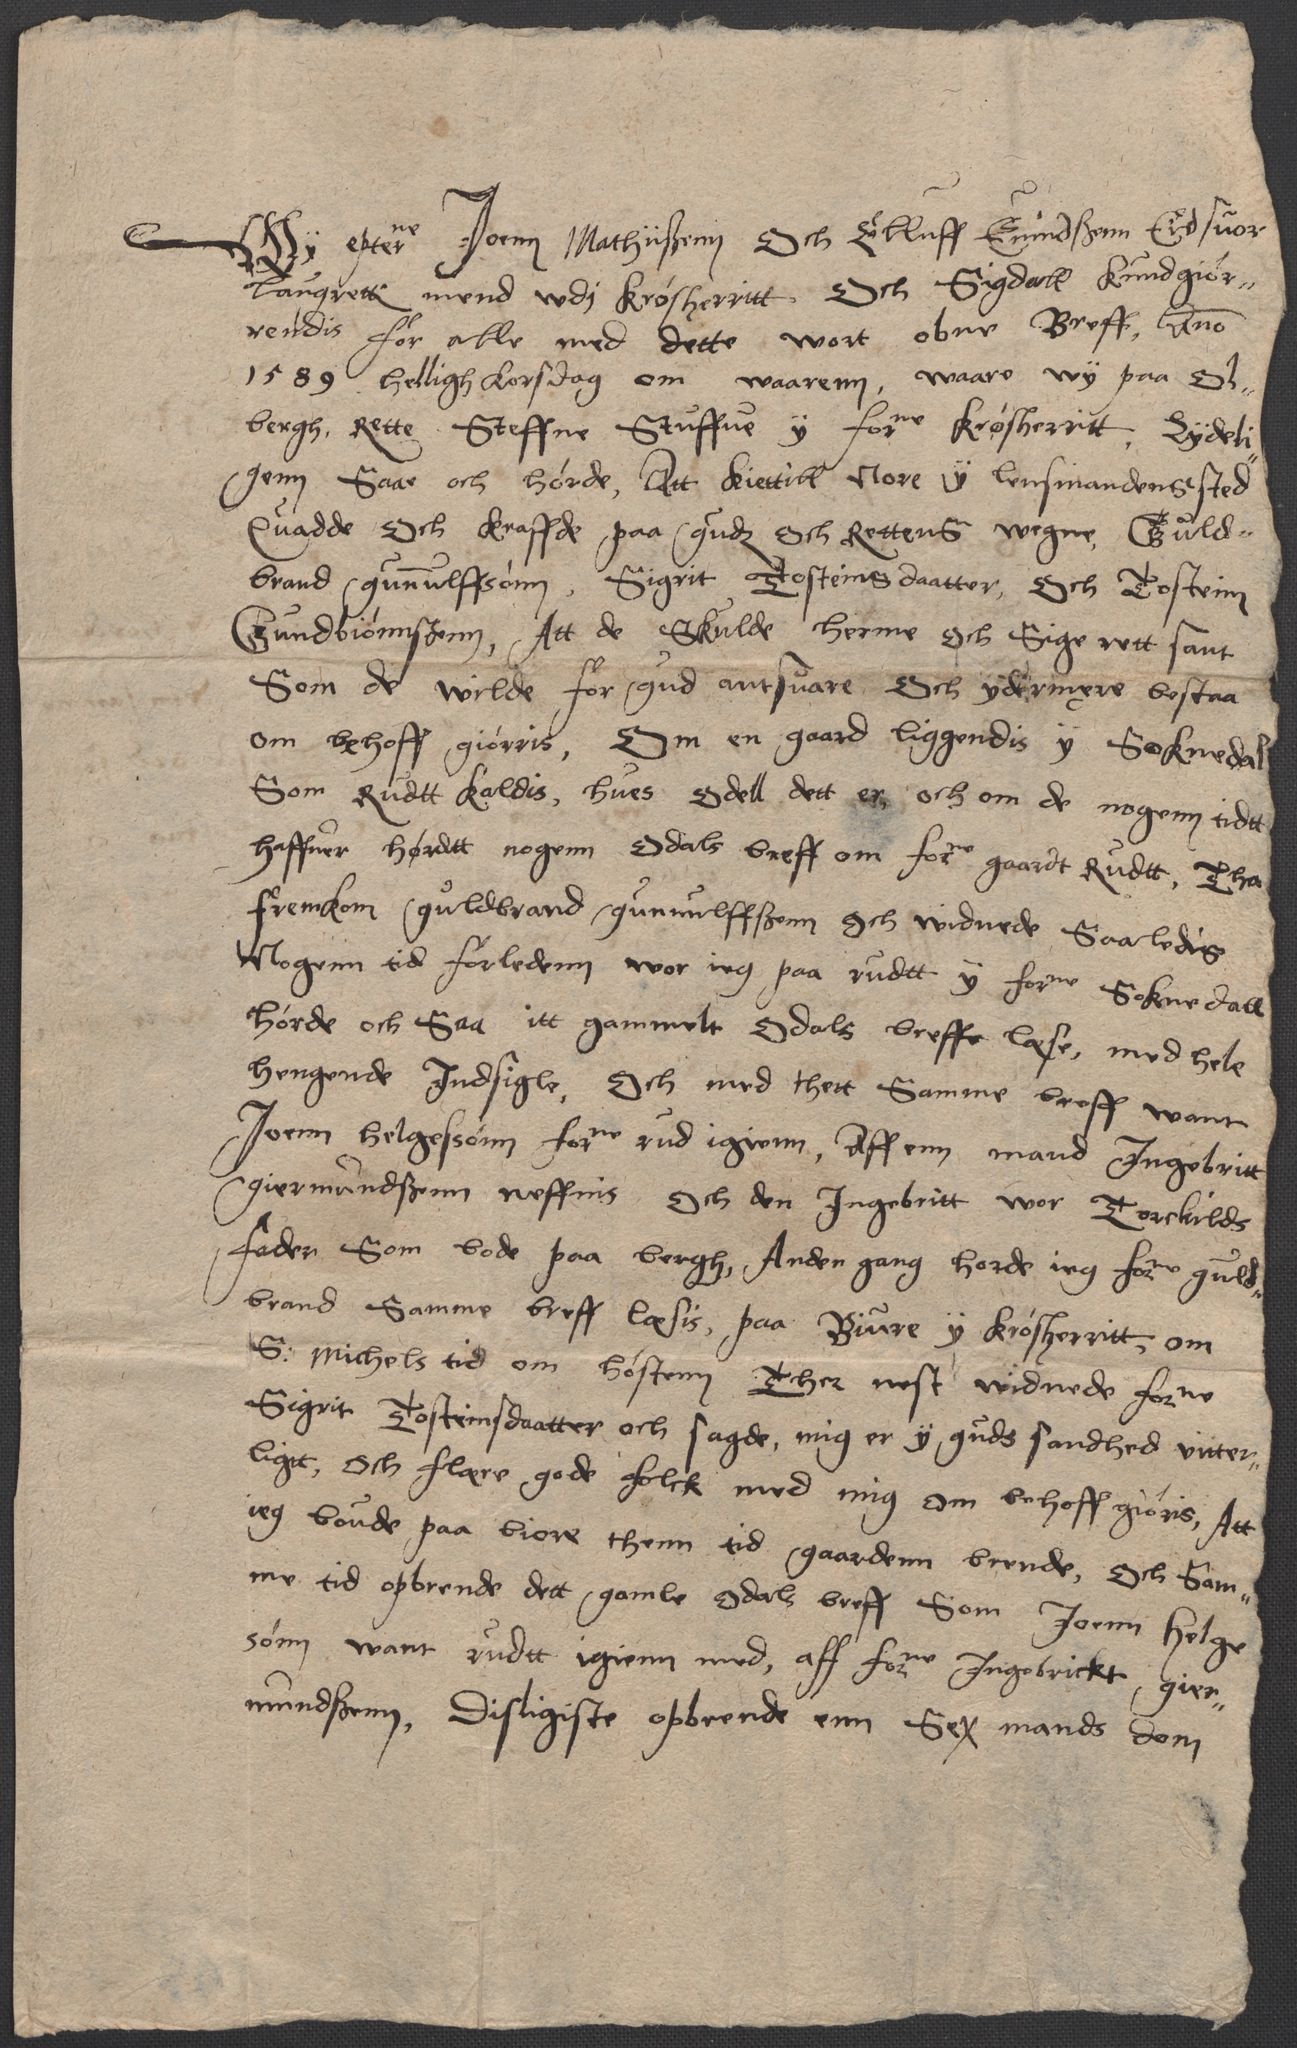 Wÿ epterne Joenn Mathÿßenn Och Ølluff Emundßenn Edsuor
laugrett mend wdj Krósherritt Och Sigdall Kundgiór„
rendis för alle med dette wort obne Breff, Anno
1589 helligh Korsdag om waarenn, waare wÿ paa Ol„
bergh, Rette Steffne Stuffue ÿ forne Krósherritt, Lÿdeli„
genn Saae och hórde, Att Kiettill Nore ÿ lensmandens sted
Quadde Och kraffde paa gudz Och Rettens wegne, Guld„
brand gunnulffsónn, Sigrit Tosteinsdaatter, Och Tosteinn
Gundbiórnßenn, Att de Skulde herme och Sige rett sant
Som de wilde for gud antsuare Och ÿdermere bestaa
om behoff giórris, Om en gaard liggendis ÿ Soknedal
Som Rudtt kaldis, hues Odell dett er, och om de nogenn tidtt
haffuer hordtt nogenn Odals breff om forne gaardt Rudtt, Tha
fremkom guldbrand gunnulffßenn Och widnede Saaledis
Nogenn tid förledenn wor ieg paa rudtt ÿ forne Soknedall
hórde och Saa itt gammelt Odals breffe læse, med hele
hengende Indsigle, Och med thett Samme breff want
Joenn helgessónn forne rud igienn, Aff enn mand Ingebritt
giermundßenn neffnis Och den Ingebritt wor Torckilds
fader Som bode paa bergh, Anden gang horde ieg forne guld„
brand Samme breff læsis, paa Biure ÿ Krósherritt, om
S: Michels tid om hóstenn Ther nest widnede forne
Sigrit Tosteinsdaatter och sagde, mig er ÿ guds sandhed vitter„
ligt, Och flere gode folck med mig om behoff gióris, Att
ieg boude paa biore thenn tid gaardenn brende, Och Sam„
me tid opbrende dett gamle Odals breff Som Joenn Helge
sónn want rudtt igienn med, aff forne Ingebrickt gier„
mundßenn, Disligiste opbrende enn Sex mands dom